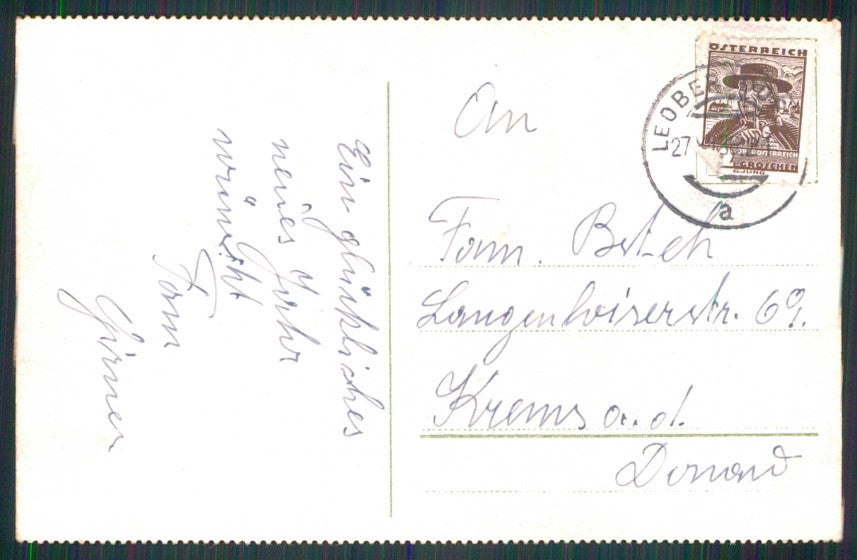 Ein glückliches
neues Jahr
wünscht
Fam
An
Fam.
Langenloiserstr. 69.
Krems a. d.
Donau
ÖSTERREICH
OBERÖSTERREICH
GROSCHEN
G.JUNG
LEOBER
27
a